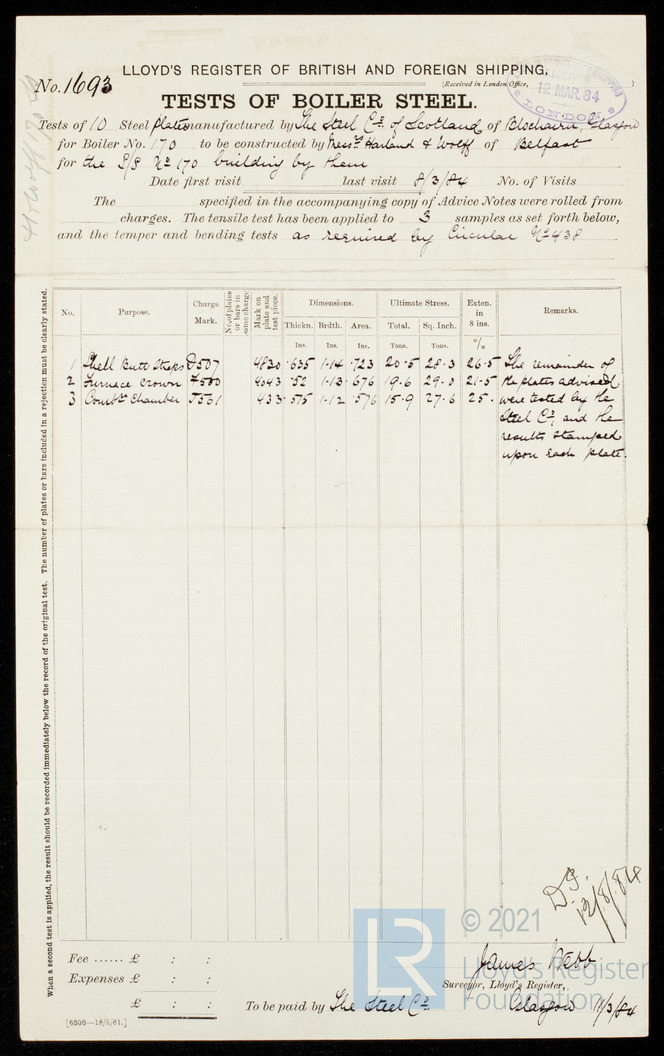 No. 1693
LLOYD'S REGISTER OF BRITISH AND FOREIGN SHIPPING.
(Received in London Office, )
12 MAR. 84
LONDON
TESTS OF BOILER STEEL.
Tests of 10 Steel plates manufactured by The Steel Co. of Scotland of Blochairn, Glasgow
for Boiler No. 170 to be constructed by Messrs Harland & Wolff of Belfast
for the S/S No 170 building by them
Date first visit last visit 8/3/84 No. of Visits
The specified in the accompanying copy of Advice Notes were rolled from
charges. The tensile test has been applied to 3 samples as set forth below,
and the temper and bending tests as required by Circular No 438
No. Purpose. Charge Mark. No. of plates or bars in same charge Mark on plate and test piece. Dimensions. Ultimate Stress. Exten. in 8 ins. Remarks.
Thickn. Brdth. Area. Total. Sq. Inch.
Ins. Ins. Ins. Tons. Tons. %
1 Shell Butt Straps 4830 .635 1.14 .723 20.5 28.3 26.5 The remainder of
2 Furnace Crown 4043 .52 1.13 .676 19.6 29.0 21.5 the plates advised
3 Combt Chamber 433 .515 1.12 .576 15.9 27.6 25. were tested by the
Steel Co. and the
results stamped
upon each plate.
When a second test is applied, the result should be recorded immediately below the record of the original test. The number of plates or bars included in a rejection must be clearly stated.
12/3/84
Fee ...... £ : :
Expenses £ : :
£ : :
[6000—18/6/81.]
To be paid by The Steel Co.
James Webb
Surveyor, Lloyd's Register,
Glasgow 11/3/84
LR
© 2021
Lloyd's Register
Foundation